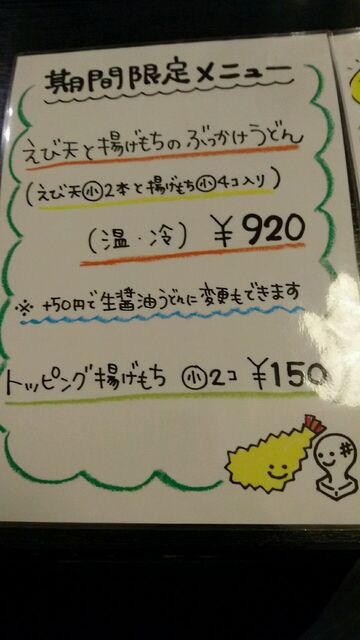 期間限定メニュー
えび天と揚げもちのぶっかけうどん
(えび天小2本と揚げもち小4コ入り)
(温・冷) ¥920
※ +50円で生醤油うどんに変更もできます
トッピング揚げもち 小2コ ¥150